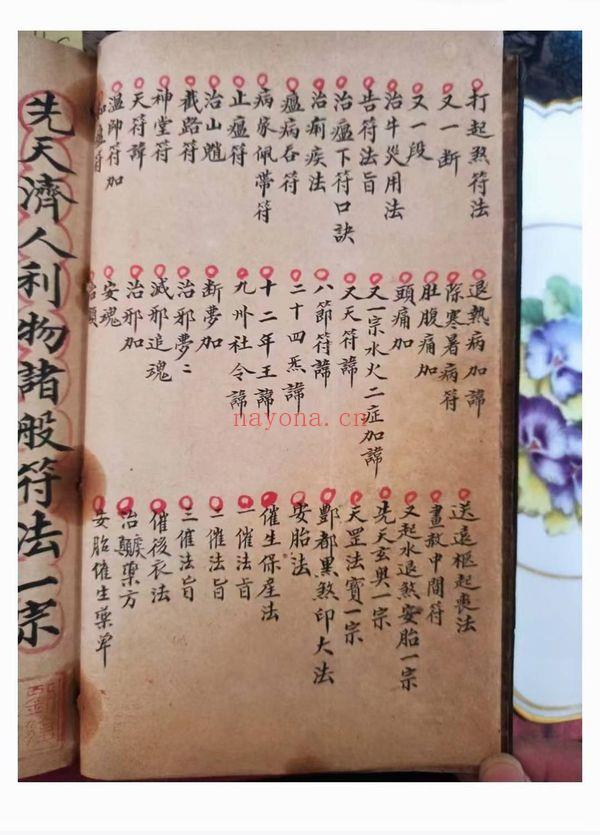 打起煞符法
又一断
又一段
治牛災用法
告符法旨
治瘟下符口訣
治痢疾法
瘟病吞符
病家佩帶符
止瘟符
治山魈
截路符
神堂符
天符諱
温師符加
瘟符
退熱病加諱
除寒暑病符
肚腹痛加
頭痛加
又一宗水火二症加諱
又天符諱
八節符諱
二十四炁諱
十二年王諱
九州社令諱
断夢加
治邪夢二
滅邪追魂
治邪加
安魂
送遠柩起喪法
畫敕中間符
又起水退煞安胎一宗
先天玄奥一宗
天罡法寶一宗
酆都黑煞印大法
安胎法
催生保産法
一催法旨
二催法旨
三催法旨
催後衣法
治藥方
安胎催生藥单
先天濟人利物諸般符法一宗
nayona.cn